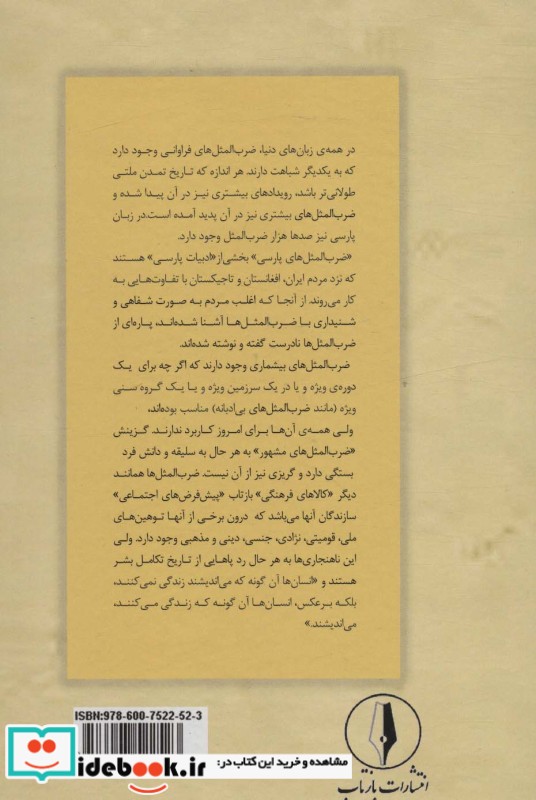 در همه‌ی زبان‌های دنیا، ضرب‌المثل‌های فراوانی وجود دارد
که به یکدیگر شباهت دارند. هر اندازه که تاریخ تمدن ملتی
طولانی‌تر باشد، رویدادهای بیشتری نیز در آن پیدا شده و
ضرب‌المثل‌های بیشتری نیز در آن پدید آمده است.در زبان
پارسی نیز صدها هزار ضرب‌المثل وجود دارد.
«ضرب‌المثل‌های پارسی» بخشی‌از«ادبیات پارسی» هستند
که نزد مردم ایران، افغانستان و تاجیکستان با تفاوت‌هایی به
کار می‌روند. از آنجا که اغلب مردم به صورت شفاهی و
شنیداری با ضرب‌المثل‌ها آشنا شده‌اند، پاره‌ای از
ضرب‌المثل‌ها نادرست گفته و نوشته شده‌اند.
ضرب‌المثل‌های بیشماری وجود دارند که اگر چه برای یک
دوره‌ی ویژه و یا در یک سرزمین ویژه و یا یک گروه سنی
ویژه (مانند ضرب‌المثل‌های بی‌ادبانه) مناسب بوده‌اند،
ولی همه‌ی آن‌ها برای امروز کاربرد ندارند. گزینش
«ضرب‌المثل‌های مشهور» به هر حال به سلیقه و دانش فرد
بستگی دارد و گریزی نیز از آن نیست. ضرب‌المثل‌ها همانند
دیگر «کالاهای فرهنگی» بازتاب «پیش‌فرض‌های اجتماعی»
سازندگان آنها می‌باشد که درون برخی از آنها توهین‌های
ملی، قومیتی، نژادی، جنسی، دینی و مذهبی وجود دارد. ولی
این ناهنجاری‌ها به هر حال رد پاهایی از تاریخ تکامل بشر
هستند و «انسان‌ها آن گونه که می‌اندیشند زندگی نمی‌کنند،
بلکه برعکس، انسان‌ها آن گونه که زندگی می‌کنند،
می‌اندیشند.»
ISBN:978-600-7522-52-3
انتشارات بازتاب
idebook.ir
مشاهده و خرید این کتاب در: